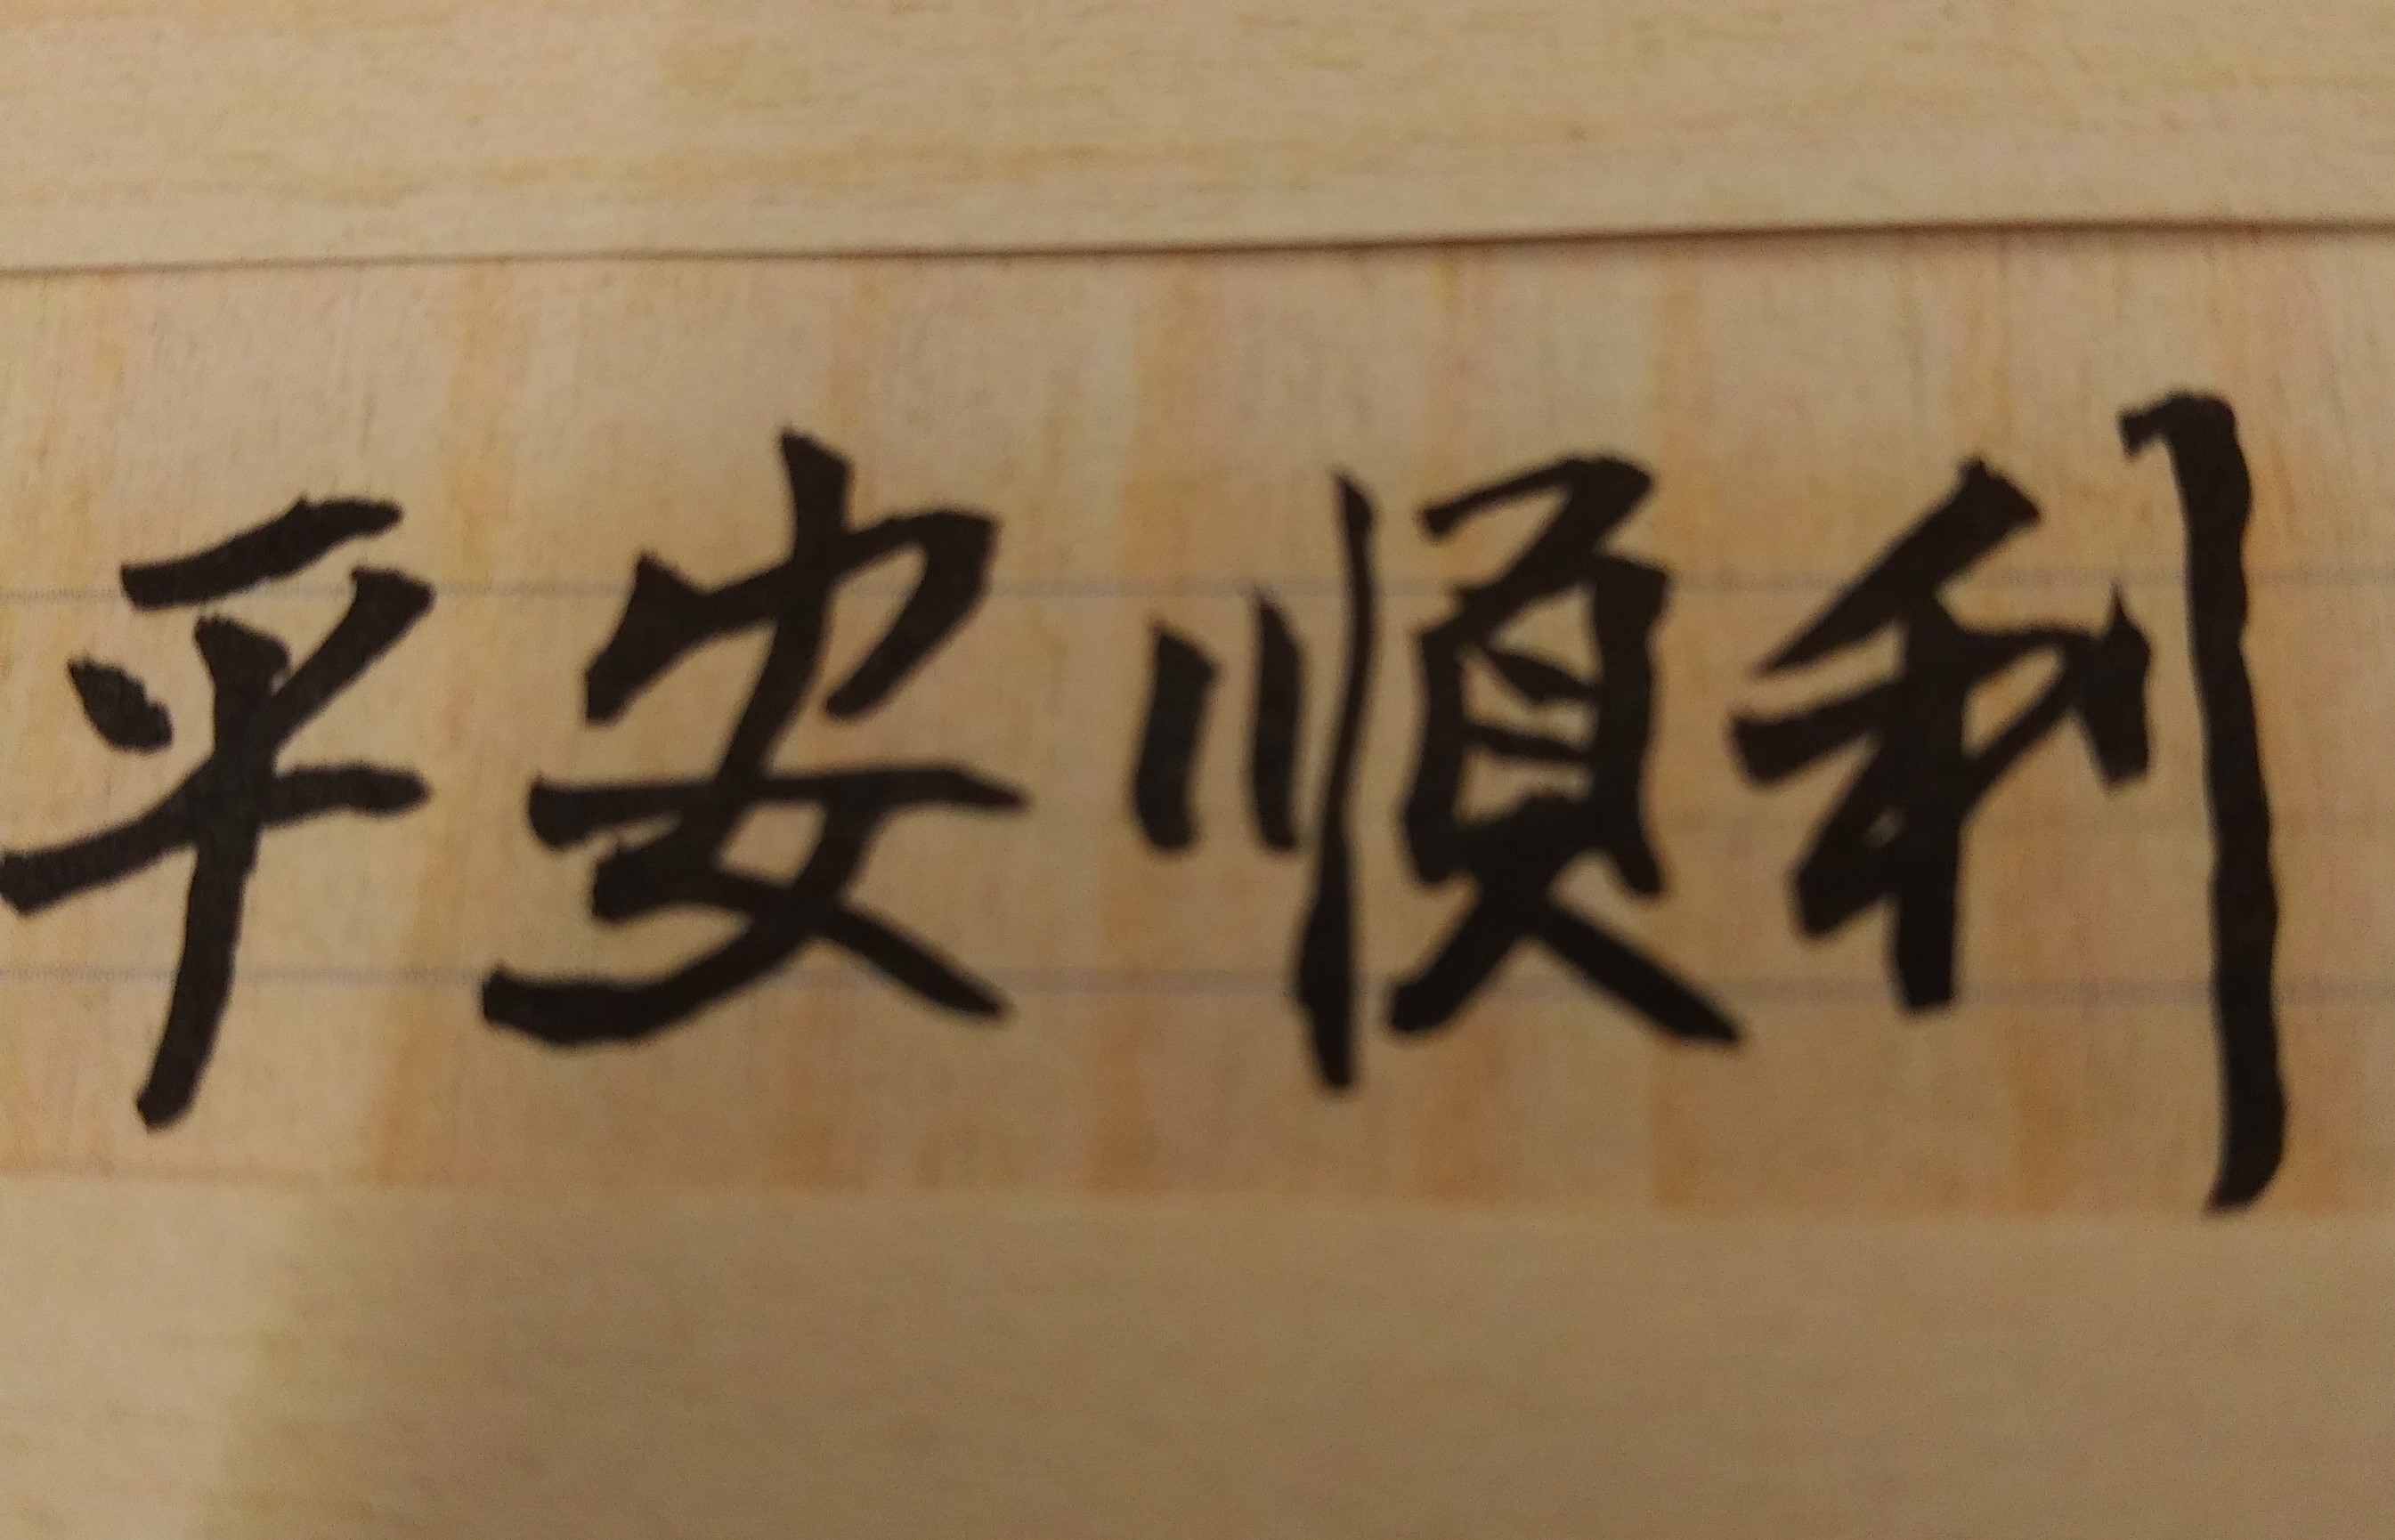 平安順利